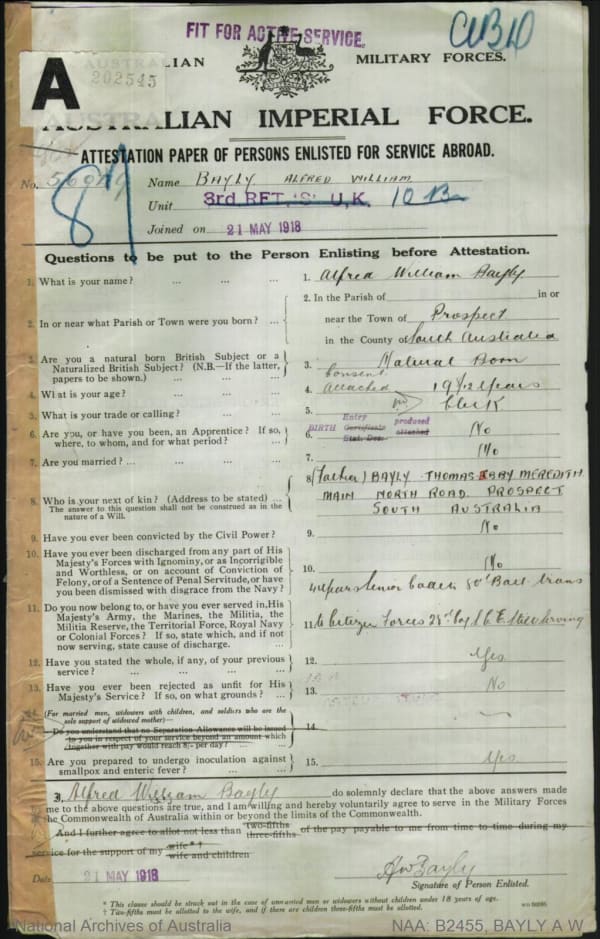 FIT FOR ACTIVE SERVICE.
A
AUSTRALIAN MILITARY FORCES.
202545
AUSTRALIAN IMPERIAL FORCE.
ATTESTATION PAPER OF PERSONS ENLISTED FOR SERVICE ABROAD.
No. Name BAYLY ALFRED WILLIAM
87
Unit 3rd RFT. 'S' U.K. 10 B
Joined on 21 MAY 1918
Questions to be put to the Person Enlisting before Attestation.
1. What is your name? ... ... ... 1. Alfred William Bayly
2. In or near what Parish or Town were you born? ... 2. In the Parish of in or
near the Town of Prospect
in the County of South Australia
3. Are you a natural born British Subject or a
Naturalized British Subject? (N.B.—If the latter,
papers to be shown.) ... ... ... 3. Natural Born
Consent
attached
4. What is your age? ... ... ... 4. 19 years
5. What is your trade or calling? ... ... 5. Clerk
BIRTH Entry Certificate produced
Stat. Dec. attached
6. Are you, or have you been, an Apprentice? If so,
where, to whom, and for what period? ... 6. No
7. Are you married? ... ... ... 7. No
8. Who is your next of kin? (Address to be stated) ...
The answer to this question shall not be construed as in the
nature of a Will.
8 (Father) BAYLY THOMAS MEREDITH
MAIN NORTH ROAD PROSPECT
SOUTH AUSTRALIA
9. Have you ever been convicted by the Civil Power? 9. No
10. Have you ever been discharged from any part of His
Majesty's Forces with Ignominy, or as Incorrigible
and Worthless, or on account of Conviction of
Felony, or of a Sentence of Penal Servitude, or have
you been dismissed with disgrace from the Navy? 10. No
11. Do you now belong to, or have you ever served in, His
Majesty's Army, the Marines, the Militia, the
Militia Reserve, the Territorial Force, Royal Navy
or Colonial Forces? If so, state which, and if not
now serving, state cause of discharge. ...
4 years Senior Cadets trans
11. to Citizen Forces Still Serving
12. Have you stated the whole, if any, of your previous
service? ... ... ... ... 12. Yes
13. Have you ever been rejected as unfit for His
Majesty's Service? If so, on what grounds? ... 13. No
14. (For married men, widowers with children, and soldiers who are the
sole support of widowed mother)—
Do you understand that no Separation Allowance will be issued
to you in respect of your service beyond an amount which
together with pay would reach 8/- per day? ... 14.
15. Are you prepared to undergo inoculation against
smallpox and enteric fever? ... ... 15. Yes
I, Alfred William Bayly do solemnly declare that the above answers made
by me to the above questions are true, and I am willing and hereby voluntarily agree to serve in the Military Forces
of the Commonwealth of Australia within or beyond the limits of the Commonwealth.
And I further agree to allot not less than two-fifths three-fifths of the pay payable to me from time to time during my
service for the support of my wife* † wife and children
Date 21 MAY 1918 AW Bayly
Signature of Person Enlisted.
* This clause should be struck out in the case of unmarried men or widowers without children under 18 years of age.
† Two-fifths must be allotted to the wife, and if there are children three-fifths must be allotted.
National Archives of Australia NAA: B2455, BAYLY A W